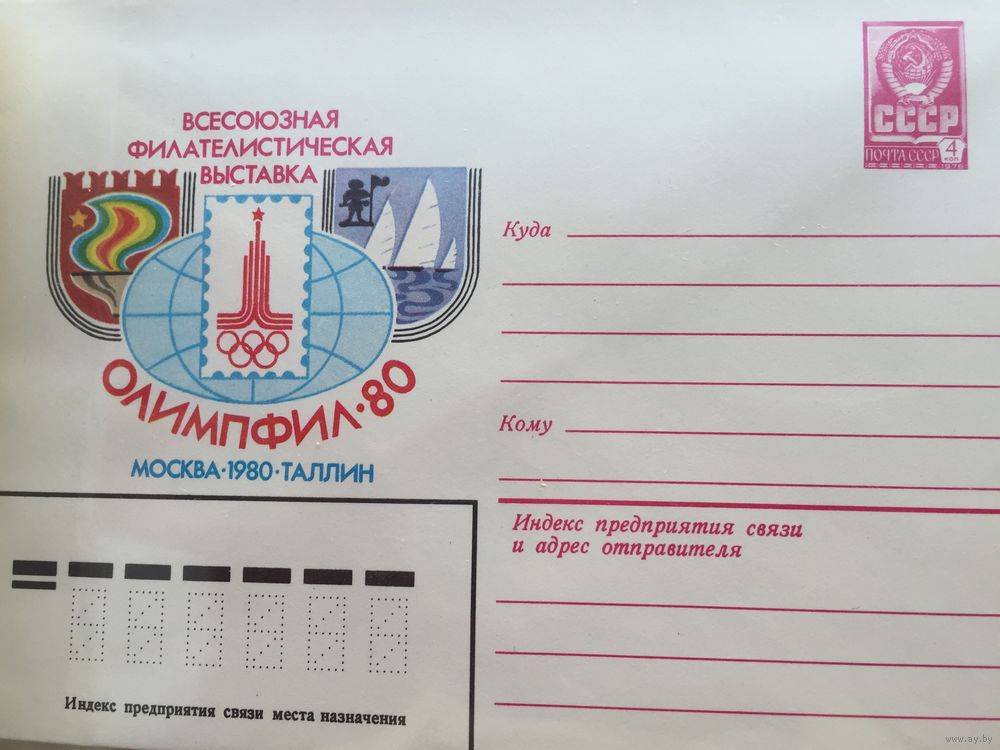 ВСЕСОЮЗНАЯ
ФИЛАТЕЛИСТИЧЕСКАЯ
ВЫСТАВКА
ОЛИМПФИЛ·80
МОСКВА·1980·ТАЛЛИН
СССР
ПОЧТА СССР 4 КОП
1976
Куда
Кому
Индекс предприятия связи
и адрес отправителя
Индекс предприятия связи места назначения
www.ay.by